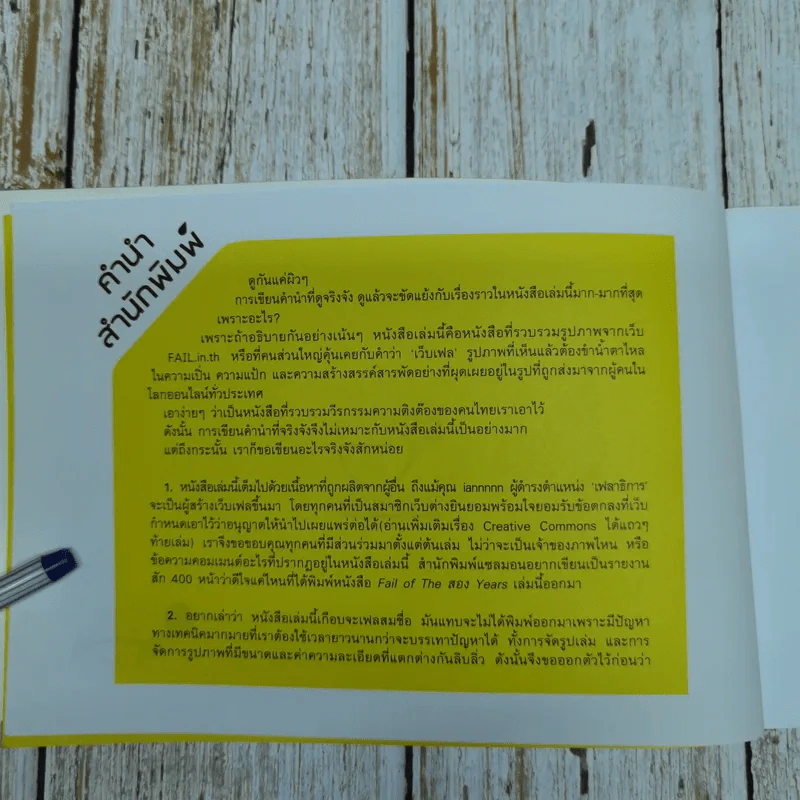 คำนำ
สำนักพิมพ์
ดูกันแค่ผิวๆ
การเขียนคำนำที่ดูจริงจัง ดูแล้วจะขัดแย้งกับเรื่องราวในหนังสือเล่มนี้มาก-มากที่สุด
เพราะอะไร?
เพราะถ้าอธิบายกันอย่างเน้นๆ หนังสือเล่มนี้คือหนังสือที่รวบรวมรูปภาพจากเว็บ
FAIL.in.th หรือที่คนส่วนใหญ่คุ้นเคยกับคำว่า 'เว็บเฟล' รูปภาพที่เห็นแล้วต้องขำน้ำตาไหล
ในความเปิ่น ความแป้ก และความสร้างสรรค์สารพัดอย่างที่ผุดเผยอยู่ในรูปที่ถูกส่งมาจากผู้คนใน
โลกออนไลน์ทั่วประเทศ
เอาง่ายๆ ว่าเป็นหนังสือที่รวบรวมวีรกรรมความติงต๊องของคนไทยเราเอาไว้
ดังนั้น การเขียนคำนำที่จริงจังจึงไม่เหมาะกับหนังสือเล่มนี้เป็นอย่างมาก
แต่ถึงกระนั้น เราก็ขอเขียนอะไรจริงจังสักหน่อย
1. หนังสือเล่มนี้เต็มไปด้วยเนื้อหาที่ถูกผลิตจากผู้อื่น ถึงแม้คุณ iannnnn ผู้ดำรงตำแหน่ง 'เฟลาธิการ'
จะเป็นผู้สร้างเว็บเฟลขึ้นมา โดยทุกคนที่เป็นสมาชิกเว็บต่างยินยอมพร้อมใจยอมรับข้อตกลงที่เว็บ
กำหนดเอาไว้ว่าอนุญาตให้นำไปเผยแพร่ต่อได้(อ่านเพิ่มเติมเรื่อง Creative Commons ได้แถวๆ
ท้ายเล่ม) เราจึงขอขอบคุณทุกคนที่มีส่วนร่วมมาตั้งแต่ต้นเล่ม ไม่ว่าจะเป็นเจ้าของภาพไหน หรือ
ข้อความคอมเมนต์อะไรที่ปรากฏอยู่ในหนังสือเล่มนี้ สำนักพิมพ์แซลมอนอยากเขียนเป็นรายงาน
สัก 400 หน้าว่าดีใจแค่ไหนที่ได้พิมพ์หนังสือ Fail of The สอง Years เล่มนี้ออกมา
2. อยากเล่าว่า หนังสือเล่มนี้เกือบจะเฟลสมชื่อ มันแทบจะไม่ได้พิมพ์ออกมาเพราะมีปัญหา
ทางเทคนิคมากมายที่เราต้องใช้เวลายาวนานกว่าจะบรรเทาปัญหาได้ ทั้งการจัดรูปเล่ม และการ
จัดการรูปภาพที่มีขนาดและค่าความละเอียดที่แตกต่างกันลิบลิ่ว ดังนั้นจึงขอออกตัวไว้ก่อนว่า